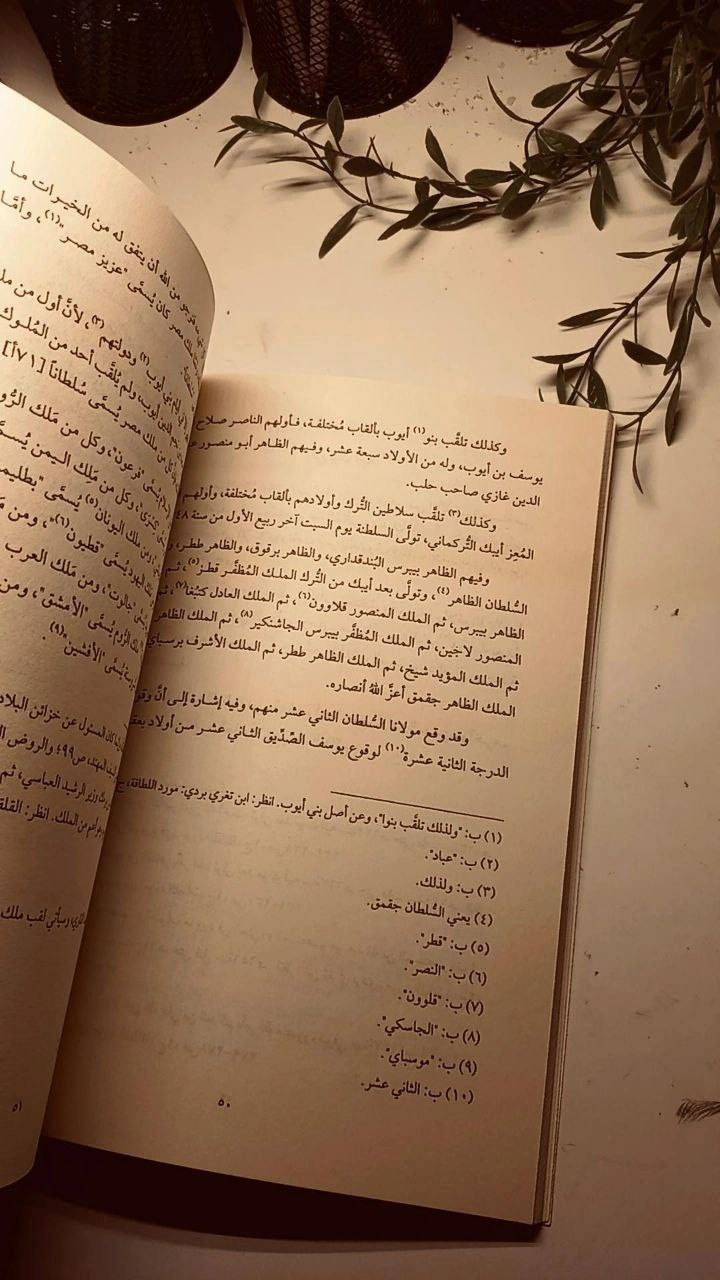 وكذلك تلقَّب بنو(١) أيوب بألقاب مُختلفة، فأولهم الناصر صلاح
يوسف بن أيوب، وله من الأولاد سبعة عشر، وفيهم الظاهر أبو منصور
الدين غازي صاحب حلب.
وكذلك(٣) تلقَّب سلاطين التُّرك وأولادهم بألقاب مُختلفة، وأولهم
المُعِز أيبك التُّركماني، تولَّى السلطنة يوم السبت آخر ربيع الأول من سنة ٤٨
وفيهم الظاهر بيبرس البُندقداري، والظاهر برقوق، والظاهر ططر،
السُّلطان الظاهر(٤)، وتولَّى بعد أيبك من التُّرك الملك المُظفَّر قطز(٥)، ثم
الظاهر بيبرس، ثم الملك المنصور قلاوون(٦)، ثم الملك العادل كتبُغا(٧)، ثم
المنصور لاجَين، ثم الملك المُظفَّر بيبرس الجاشنكير(٨)، ثم الملك الظاهر
ثم الملك المؤيد شيخ، ثم الملك الظاهر ططر، ثم الملك الأشرف برسباي
الملك الظاهر جقمق أعزَّ اللهُ أنصاره.
وقد وقع مولانا السُّلطان الثاني عشر منهم، وفيه إشارة إلى أنَّ
الدرجة الثانية عشرة(١٠) لوقوع يوسف الصِّدّيق الثاني عشر من أولاد
(١) ب: "ولذلك تلقَّب بنوا"، وعن أصل بني أيوب. انظر: ابن تغري بردي: مورد اللطافة، ج
(٢) ب: "عباد".
(٣) ب: ولذلك.
(٤) يعني السُّلطان جقمق.
(٥) ب: "قطر".
(٦) ب: "النصر".
(٧) ب: "قلوون".
(٨) ب: "الجاسكي".
(٩) ب: "موسباي".
(١٠) ب: الثاني عشر.
٥٠
من الله أن يتفق له من الخيرات ما
مصر كان يُسمَّى "عزيز مصر"(١)، وأمَّا
أيوب(٢) ودولتهم(٣)، لأنَّ أول من
أيوب، ولم يُلقَّب أحد من المُلوك
من ملك مصر يُسمَّى سُلطاناً [٧١أ]
يُسمَّى "فرعون"، وكل من مَلك
وكل من مَلِك اليمن
ملك اليونان(٥) يُسمَّى
اليهود يُسمَّى "قطيون"(٦)، ومن
"جالوت"، ومن مَلك العرب
الرُّوم يُسمَّى "الأمشق"، ومن
يُسمَّى "الأفشين"(٩).
كان المسئول عن خزائن البلاد
ص٤٩٩ والروض
وزير الرشيد العباسي، ثم
من الملك. انظر:
وسيأتي لقب ملك
٥١